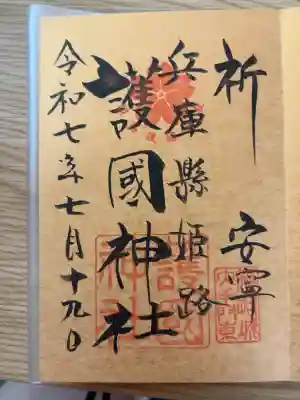 祈 安寧
兵庫縣姫路
護國神社
令和七年七月十九日